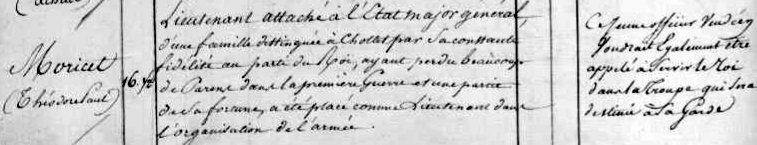 Moricet
(Théodore Paul)
16.
Lieutenant attaché à l'Etat major general,
d'une famille distinguée à Chollet par sa constante
fidélité au parti du Roi, ayant perdu beaucoup
de Parens dans la première Guerre et une partie
de sa fortune, a été placé comme Lieutenant dans
l'organisation de l'armée.
Ce jeune officier Vendéen
voudrait Egalement être
appelé à Servir le Roi
dans la troupe qui sera
destinée à Sa Garde